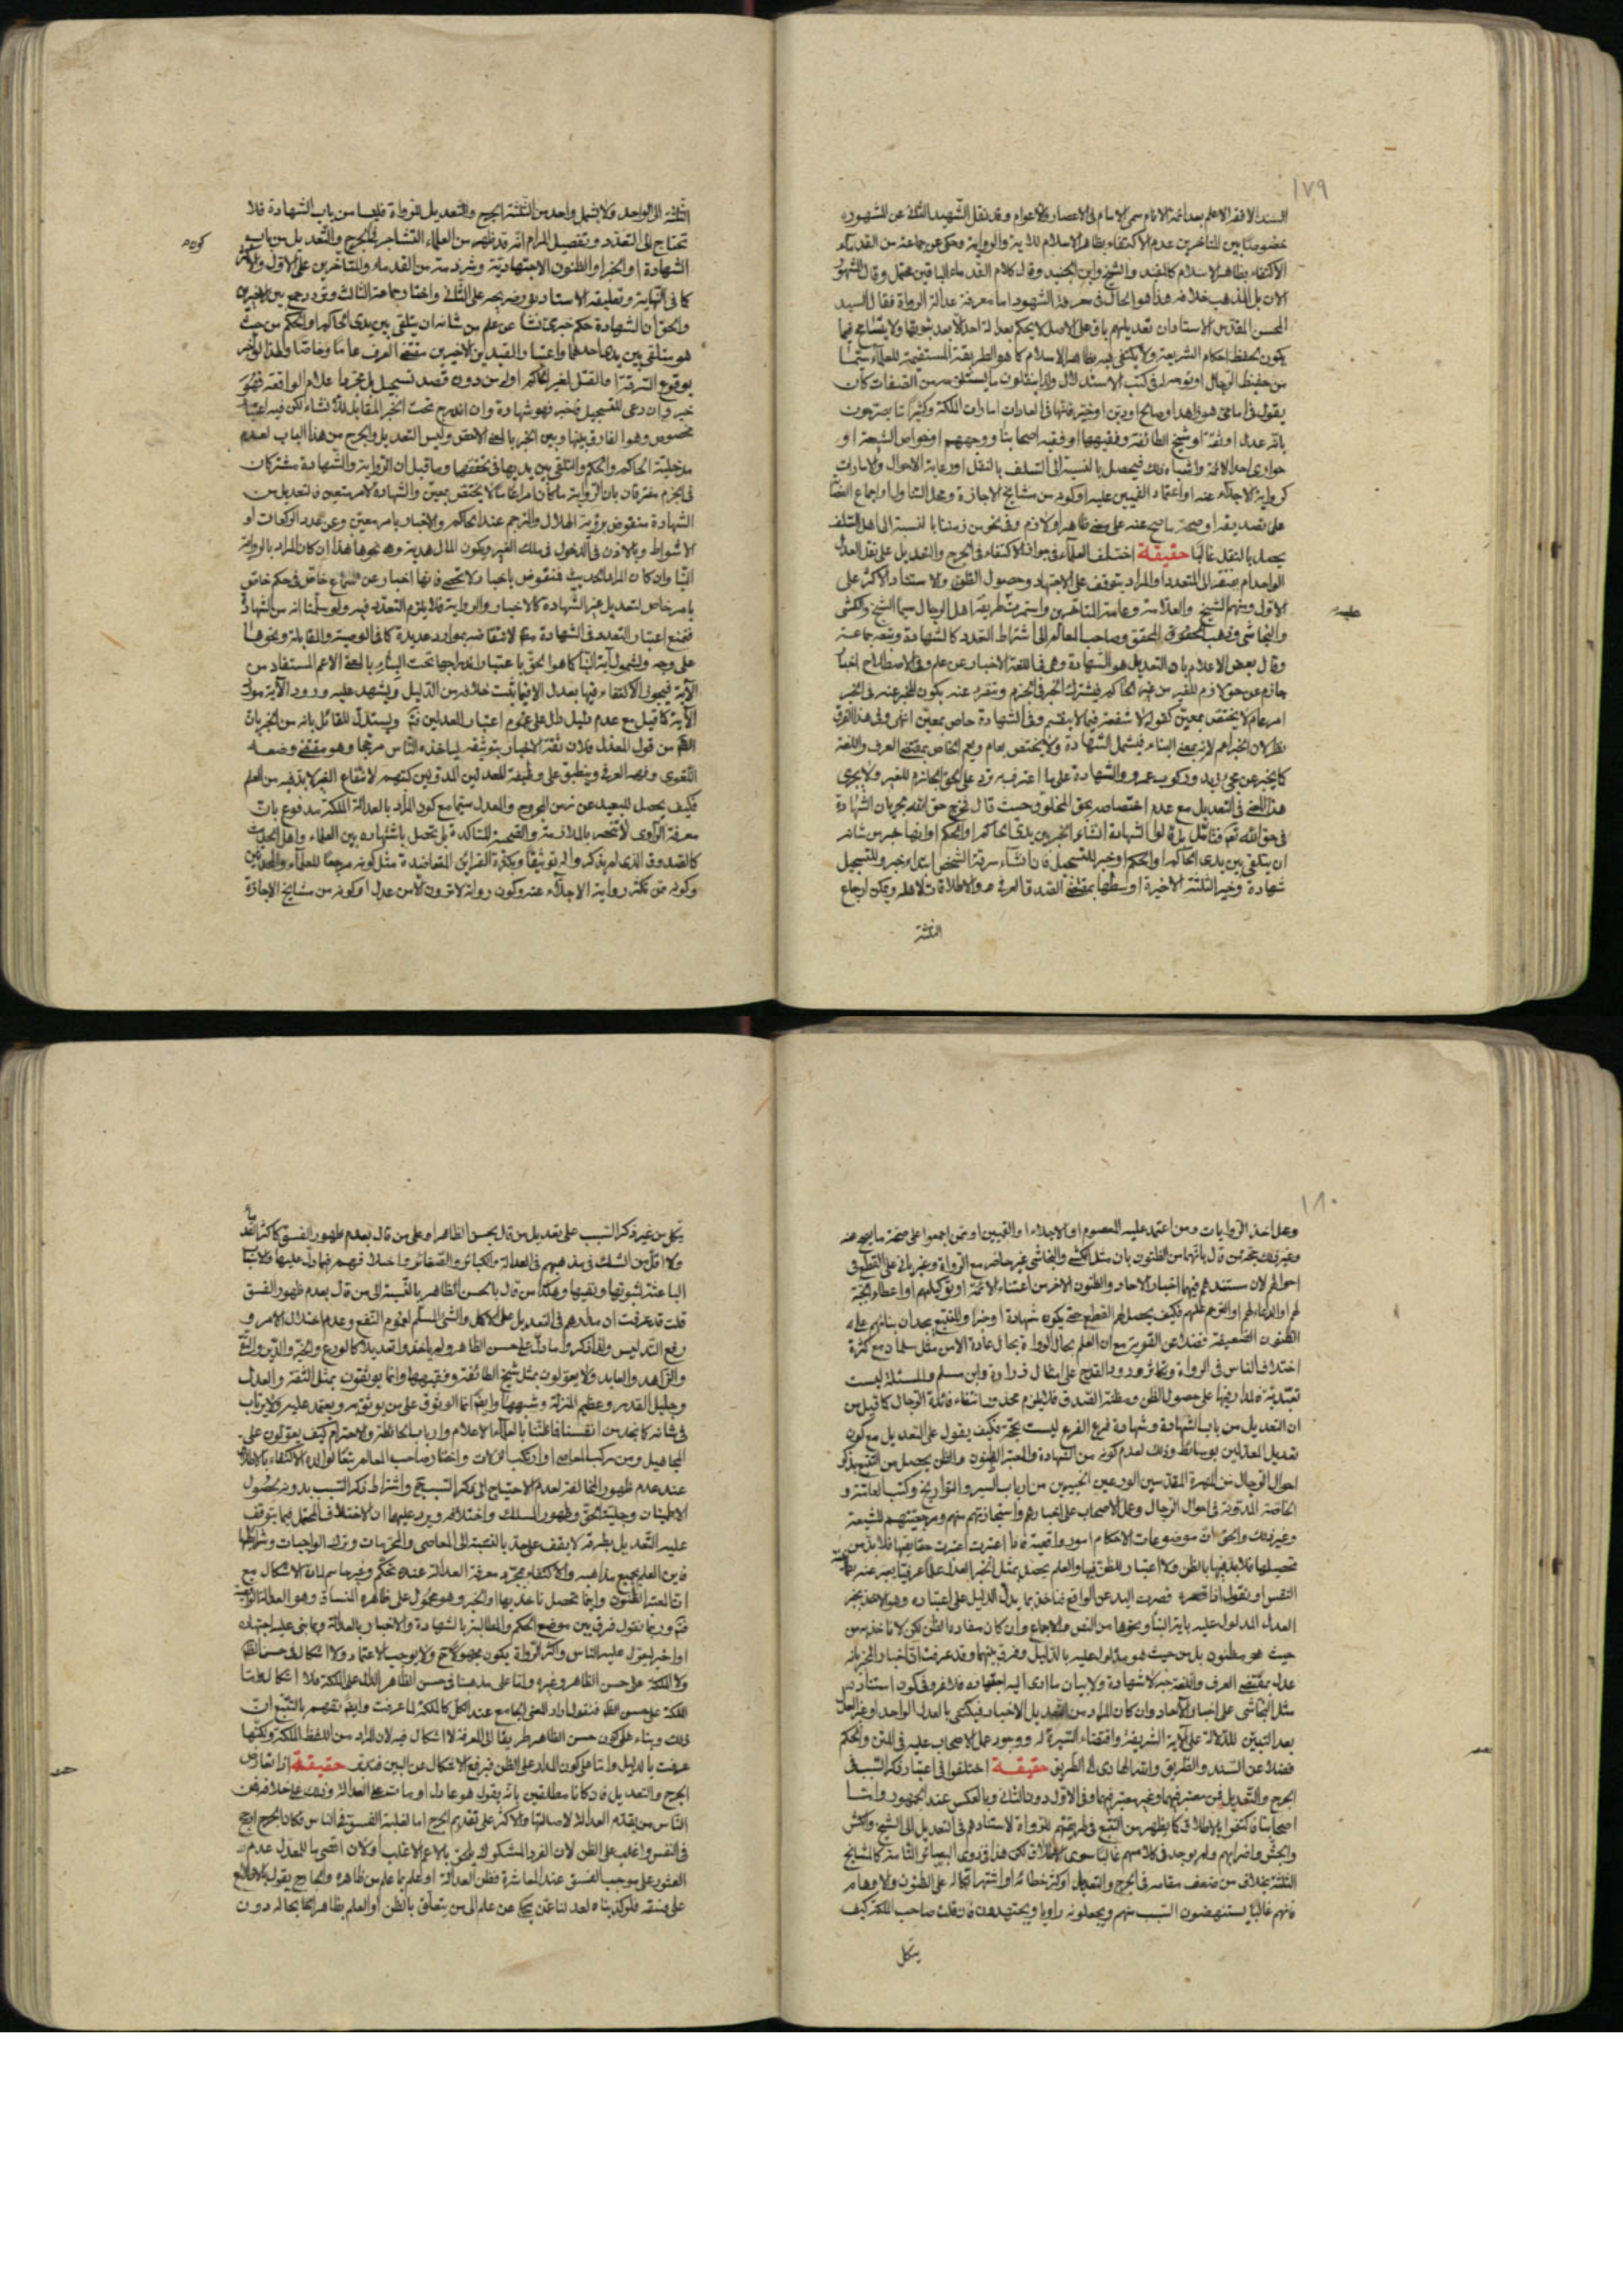 ١٧٩
السند الافقه الاعلم بعد ائمة الانام سمى الامام فى الاعصار والاعوام وقد نقل الشهيد الثانى عن المشهور
خصوصا بين المتاخرين عدم الاكتفاء بظاهر الاسلام للاية والرواية وحكى عن جماعة من القدماء
الاكتفاء بظاهر الاسلام كالمفيد والشيخ وابن الجنيد وقال كلام القدماء الباقين محتمل وقال المشهور
الان بل المذهب خلافه هذا هو الحال فى معرفة الشهود اما معرفة عدالة الرواة فقال السيد
المحسن المقدس الاستاد ان تعديلهم باق على الاصل لا يحكم بعدالة احد الا بعد ثبوتها ولا يتسامح فيما
يكون لحفظ احكام الشريعة ولا يكتفى فيه بظاهر الاسلام كما هو الطريقة المستقيمة للعلماء سيما
من حفيظ الرجال او توسل فى كتب الاستدلال وانما ينقلون ما يستلزمه من الصفات كان
يقول فى امامى هو زاهد او صالح او دين او خير فانها فى العادات امارات الملكة وكثيرا ما يصرحون
بانه عدل او ثقة او شيخ الطائفة وفقيهها او فقيه اصحابنا ووجههم او خواص الشيعة او
حوارى احد الائمة واشباه ذلك فيحصل بالنسبة الى السلف بالنقل او رعاية الاحوال والامارات
كرواية الاجلاء عنه او اعتماد القميين عليه او كونه من مشايخ الاجازة ومحل التناول او اجماع العصابة
على تصديقه او صحة ما صح عنه على معنى ظاهر او لازم وفى نحو من زمننا بالنسبة الى اهل السلف
يحصل بالنقل غالبا حقيقة اختلف العلماء فى جواز الاكتفاء فى الجرح والتعديل على نقل العدل
الواحد ام يفتقر الى المتعدد والمراد يتوقف على الاجتهاد وحصول الظنون والاستناد الاكثر على
الاول ومنهم الشيخ والعلامة وعامة المتاخرين واستمرت طريقة اهل الرجال سيما الشيخ والكشى
والنجاشى وذهب المحقق وصاحب المعالم الى اشتراط التعدد كالشهادة وتبعه جماعة
وقال بعض الاعلام بان التعديل هو الشهادة وهى فى اللغة الاخبار عن علم وفى الاصطلاح اخبار
جازم عن حق لازم للغير من غير الحاكم فيشترك الخبر فى الجزم وتتفرد عنه بكون المخبر عنه فى الخبر
امر عام لا يختص بمعين كقوله لا شفعة فيما لا يقسم وفى الشهادة خاص بمعين انتهى وفى هذا الفرق
نظر لان الخبر اعم لانه بمعنى البناء فيشمل الشهادة ولا يختص بعام ويعم الخاص بمقتضى العرف واللغة
كما يخبر عن مجئ زيد وركوب عمرو والشهادة على ما اعترف به تزد على الحق الجائزه للغير ولا يجرى
هذا المعنى فى التعديل مع عدم اختصاصه بحق المخلوق حيث قال لخرج حق الله لجريان الشهادة
فى حق الله تعالى فتامل بل قالوا الشهادة انشاء الخبر بين يدى الحاكم او الحكم او انها خبر من شانه
ان يتلقى بين يدى الحاكم او الحكم او خبر للتسجيل فان انشاء سرقة الشخص ابتداء خبر وللتسجيل
شهادة وخير الثلثة الاخيرة اوسطها بمقتضى الصدق العرفى والاطلاقات لاهله ويمكن ارجاع
الثلثة
الثلثة الى الواحد ولا يشمل واحد من الثلثة الجرح والتعديل للرواة فليسا من باب الشهادة فلا
تحتاج الى التعدد وتفصيل المرام انه قد ظهر من العلماء التشاجر فى الجرح والتعديل من باب
الشهادة او الخبر او الظنون الاجتهادية وشرذمة من القدماء والمتاخرين على الاول والاكثر
كما فى النهاية وتعليقة الاستاد وغيره على الثانى واختار جماعة الثالث وتردد جمع بين الاخيرين
والحق ان الشهادة حكم خبرى نشأ عن علم من شانه ان يتلقى بين يدى الحاكم او الحكم من حيث
هو متلقى بين يدى احدهما واعتبار القيدين الاخيرين مقتضى العرف عاما وخاصا ولهذا لو اخبر
بوقوع السرقة او القتل لغير الحاكم او له من دون قصد تسجيل بل لمجرد اعلام الواقعة فهو
خبر وان دعى للتسجيل فاخبر فهو شهادة وان اندرج تحت الخبر المقابل للانشاء لكن فيه اعتبار
مخصوص وهو الفارق بينها وبين الخبر بالمعنى الاخص وليس التعديل والجرح من هذا الباب لعدم
مدخلية الحاكم والحكم والتلقى بين يديهما فى تحققها وما قيل ان الرواية والشهادة مشتركان
فى الجزم مفترقان بان الرواية ما كان امرا عاما لا يختص بمعين والشهادة لامر متعين فالتعديل من
الشهادة منقوض برؤية الهلال والترجم عند الحاكم والاخبار بامر معين وعن عدد الركعات او
الاشواط وبالاذن فى الدخول فى ملك الغير وبكون المال هدية ونحوها هذا ان كان المراد بالرواية
النبأ وان كان المراد الحديث فمنقوض باخبار لا تحصى فانها اخبار عن سماع خاص فى حكم خاص
بامر خاص لتعديل غير الشهادة كالاخبار والرواية فلا يلزم التعدد فيه ولو سلمنا انه من الشهادة
فنمنع اعتبار التعدد فى الشهادة مطلقا لانتقاضه بموارد عديدة كما فى الوصية والمقابلة ونحوهما
على وجه ولشمول آية النبأ كما هو الحق باعتبار اندراجها تحت البناء بالمعنى الاعم المستفاد من
الآية فيجوز الاكتفاء فيها بعدل الا فيما ثبت خلافه من الدليل ويشهد عليه ورود الآية مورد
الآية كما قيل مع عدم دليل دل على عموم اعتبار العدلين فيه ويستدل للقائل بانه من الخبر بان
الظاهر من قول المعدل فلان ثقة الاخبار بتوثيقه لياخذه الناس مرجعا وهو مقتضى وضعه
اللغوى وفهمه العرفى وينطبق على وظيفة المعدلين المدونين كتبهم لانتفاع الغير لابد فيه من العلم
فكيف يحصل للبعيد عن زمن المجروح والمعدل سيما مع كون المراد بالعدالة الملكة مدفوع بان
معرفة الراوى لا تنحصر بالملازمة والصحبة المتاكدة بل يحصل باشتهاره بين العلماء واهل الحديث
كالصدوق الذى لم يذكر والده توثيقا وبكثرة القرائن المتعاضدة مثل كونه مرجعا للعلماء والمحدثين
وكونه ممن تكثر رواية الاجلاء عنه وكون رواية لا ترون الا من عدل او كونه من مشايخ الاجازة
١٨٠
وعلى اخذ الروايات ومن اعتمد عليه المعصوم او الاجلاء او القميين او ممن اجمعوا على صحة ما يصح عنه
وغير ذلك حجة من قال بانهما من الظنون بان مثل الكشى والنجاشى غير حاضر مع الرواة وغير بانى على القطع فى
احوالهم لان مستندهم فيها اخبار الاحاد والظنون الاخر من اعتناء الائمة او توكيلهم او اعطاء الجبة
لهم او الدعاء لهم او الترحم عليهم فكيف يحصل لهم القطع حتى يكون شهادة او خبرا وللمتتبع يجد ان بنائهم على
الظنون الضعيفة فضلا عن القوية مع ان العلم بحال الرواة بحال عادة الا من مثل سلمان مع كثرة
اختلاف الناس فى الرواة وتكاثر ورود القدح على امثال زرارة وابن مسلم والمسئلة ليست
تعبدية فمدار فيها على حصول الظن ومظنة الصدق فلا يلزم محذور انتفاء فائدة الرجال كما قيل من
ان التعديل من باب الشهادة وشهادة فرع الفرع ليست بحجة فكيف يقول على التعديل مع كون
تعديل المعدلين بوسائط وذلك لعدم كونه من الشهادة والمعتبر الظنون والظن يحصل من التتبع بذكر
احوال الرجال من المهرة المقدسين الورعين الخبيرين من ارباب السير والتواريخ وكتب العامة و
الخاصة المدونة فى احوال الرجال وعمل الاصحاب على اخبارهم واستجازتهم منهم ومرجعيتهم للشيعة
وغير ذلك والحق ان موضوعات الاحكام امور واقعية فاذا اعتبرت اعتبرت حقايقها فلابد من
تحصيلها فلابد فيها بالظن ولا اعتبار للظن فيها والعلم يحصل بمثل الخبر العدل علما عرفيا يعبر عنه بطمأنينة
النفس او نقول اذا قصرت اليد عن الواقع فناخذ بما يدل الدليل على اعتباره وهو الاخذ بخبر
العدل المدلول عليه باية النبأ ونحوها من النص والاجماع وان كان مفاده الظن لكن لا ناخذ به من
حيث هو مظنون بل من حيث هو مدلول عليه بالدليل وفرق بينهما وقد عرفت ان اخبار المخبر بانه
عدل بمقتضى العرف واللغة خبر لا شهادة ولا بيان ما ادى اليه اجتهاده فلا غرو فى كون استناد
مثل النجاشى على اخبار الاحاد وان كان المراد من التعديل الاخبار فيكتفى بالعدل الواحد او غير العدل
بعد التبين للدلالة على الآية الشريفة واقتضاء السيرة له ووجود عمل الاصحاب عليه فى المتن والحكم
فضلا عن السند والطريق والله الهادى الى الطريق حقيقة اختلفوا فى اعتبار ذكر السبب فى
الجرح والتعديل فمن معتبر فيهما وغير معتبر فيهما وفى الاول دون الثانى وبالعكس عند الجمهور واما
اصحابنا فاكتفوا بالاطلاق كما يظهر من التتبع فى طريقتهم للرواة لاستنادهم فى التعديل الى الشيخ والكشى
والنجاشى واضرابهم ولم يوجد فى كلامهم غالبا سوى الاطلاق لكن هذا فى ذوى البصائر التامة كالمشايخ
الثلثة بخلاف من ضعف مقامه فى الجرح والتعديل او كثر خطائه او اشتهر اتكاله على الظنون والاوهام
فانهم غالبا يستنهضون السبب منهم ويجعلونه راويا ويجتهدون فان قلت صاحب الملكة كيف
يتكل
يتكل من غير ذكر السبب على تعديل من قال بحسن الظاهر او على من قال بعدم ظهور الفسق كما كثر القدماء
ولا اقل من الشك فى مذهبهم فى العدالة والكبائر والصغائر واختلافهم فيما دل عليها والاسباب
الباعثة لثبوتها ونفيها وهكذا من قال بالحسن الظاهر بالنسبة الى من قال بعدم ظهور الفسق
قلت قد عرفت ان مدارهم فى التعديل على الاكمل والشئ المسلم لعموم النفع وعدم اختلال الامر و
رفع التدليس ولهذا ذكروا ما دل على حسن الظاهر ولم ياخذوا تعديلا كالورع والخير والدين والتقى
والزاهد والعابد ولا يعولون بمثل شيخ الطائفة وفقيهها وانما يوثقون بمثل الثقة والعدل
وجليل القدر وعظيم المنزلة وشبهها وايضا انما الوثوق على من يوثق به ويعتمد عليه ولا يرتاب
فى شانه كما نجد من انفسنا فما ظننا بالعلماء الاعلام وارباب الحائطة والاحترام كيف يعولون على
المجاهيل ومن يركب المعاصى او ارتكب الزلات واختار صاحب المعالم تبعا لوالده الاكتفاء بالاطلاق
عند عدم ظهور المخالفة لعدم الاحتياج الى ذكر السبب ح واشتراط ذكر السبب بدونه لحصول
الاطمينان وجلية الحق وظهور المسلك واختلافه ويرد عليهما ان الاختلاف المحتمل فيما يتوقف
عليه التعديل بطرقه لا يقف على حد بالنسبة الى المعاصى والمحرمات وترك الواجبات وشرائطها
فاين العلم بجميع مذاهبه والاكتفاء بمجرد معرفة العدالة عنده تحكم وغير حاسم لمادة الاشكال مع
انا لم نعتبر الظنون وانما تحصل ناخذ بها والخبر وهو محمول على ظاهره المنساق وهو العدالة الواقعية
فتم وربما نقول فرق بين موضع الحكم والمطالبة بالشهادة والاخبار بالعدالة وما بنى عليه اجتهاده
او اخبر ليعول عليه الناس واكثر الرواة يكون مجهولا ح ولا يوجب الاعتماد ولا اشكال فى حسن الظاهر
ولا الملكة على حسن الظاهر وغيره واما على مذهبنا فى حسن الظاهر الدال على الملكة فلا اشكال
الملكة على حسن الظاهر فنقول اراد المعنى الجامع عند الكل كالملكة لما عرفت وايضا نفهم بالتتبع ان
ذلك وبناء على كون حسن الظاهر طريقا الى المعرفة لا اشكال فيه لان المراد من اللفظ الملكة ولكنها
عرفت بالدليل واما على كون المدار على الظن فيرفع الاشكال عن البين فتدبر حقيقة اذا تعارض
الجرح والتعديل فان كانا مطلقين بانه يقول هو عادل او مات على العدالة وذلك على خلافه فمن
الناس من يقدم العدالة لاصالتها والاكثر على تقديم الجرح اما لغلبة الفسق فى الناس فكان الجرح ارجح
فى النفس واغلب على الظن لان الفرد المشكوك يلحق بالاعم الاغلب او لان اقصى ما للمعدل عدم
العثور على موجب الفسق عند المعاشرة فظن العدالة او علم بما علم من ظاهره والجارح يقول بالاطلاع
على فسقه فلو كذبناه لعدلنا عمن يحكى عن علم الى من يتعلق بالظن او العلم بظاهر الحال بحاله دون